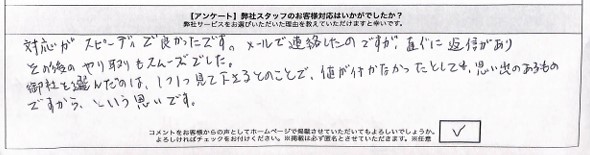 【アンケート】弊社スタッフのお客様対応はいかがでしたか?
弊社サービスをお選びいただいた理由を教えていただけますと幸いです。
対応がスピーディで良かったです。メールで連絡したのですが、直ぐに返信があり
その後のやり取りもスムーズでした。
御社を選んだのは、1つ1つ見て下さるとのことで、値が付かなかったとしても、思い出のあるもの
ですから、という思いです。
コメントをお客様からの声としてホームページで掲載させていただいてもよろしいでしょうか。
よろしければチェックをお付けください。※掲載は必ず匿名とさせていただきます。※任意